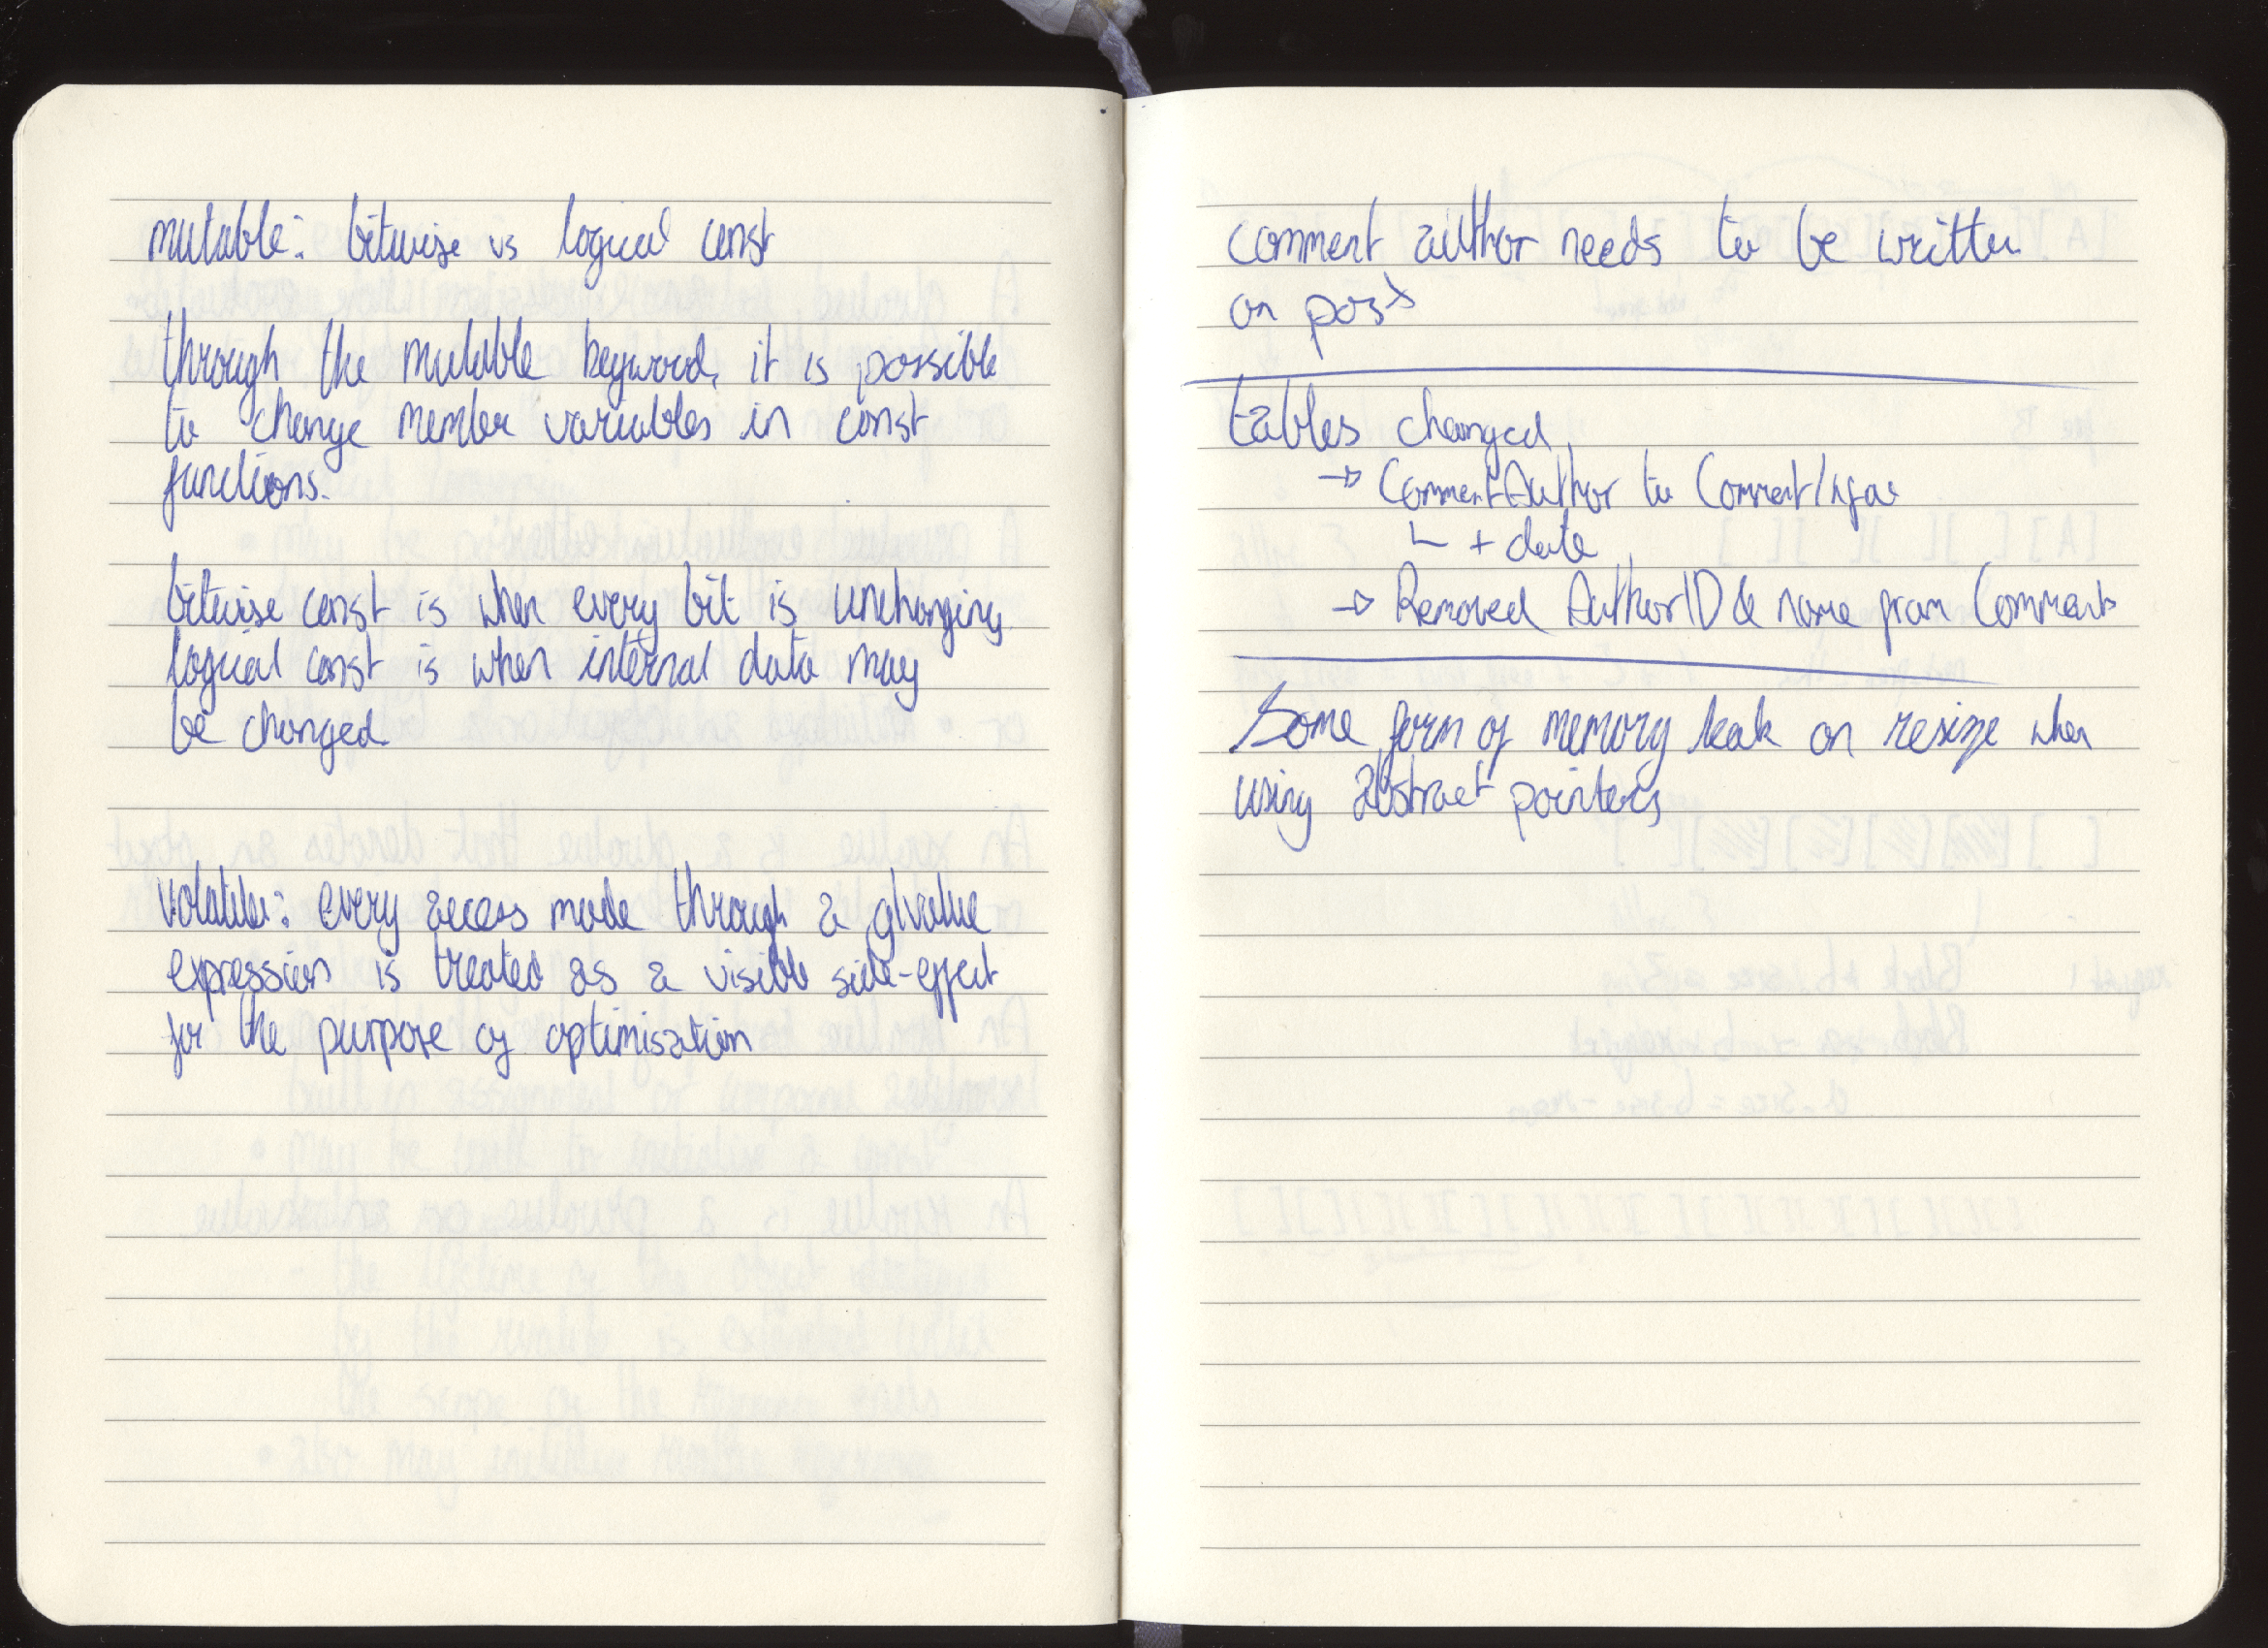 mutable: bitwise vs logical const
through the mutable keyword, it is possible
to change member variables in const
functions.
bitwise const is when every bit is unchanging
logical const is when internal data may
be changed
volatile: every access made through a glvalue
expression is treated as a visible side-effect
for the purpose of optimisation
comment author needs to be written
on post
tables changed
→ CommentAuthor to CommentInfo
↳ + date
→ Removed AuthorID & name from Comments
Some form of memory leak on resize when
using abstract pointers